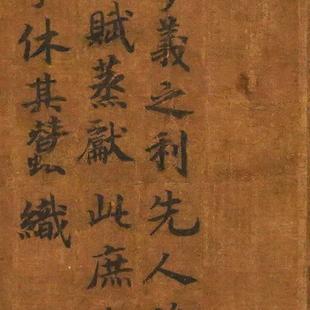 義之利先人
賦蒸獻此庶
休其蠶織